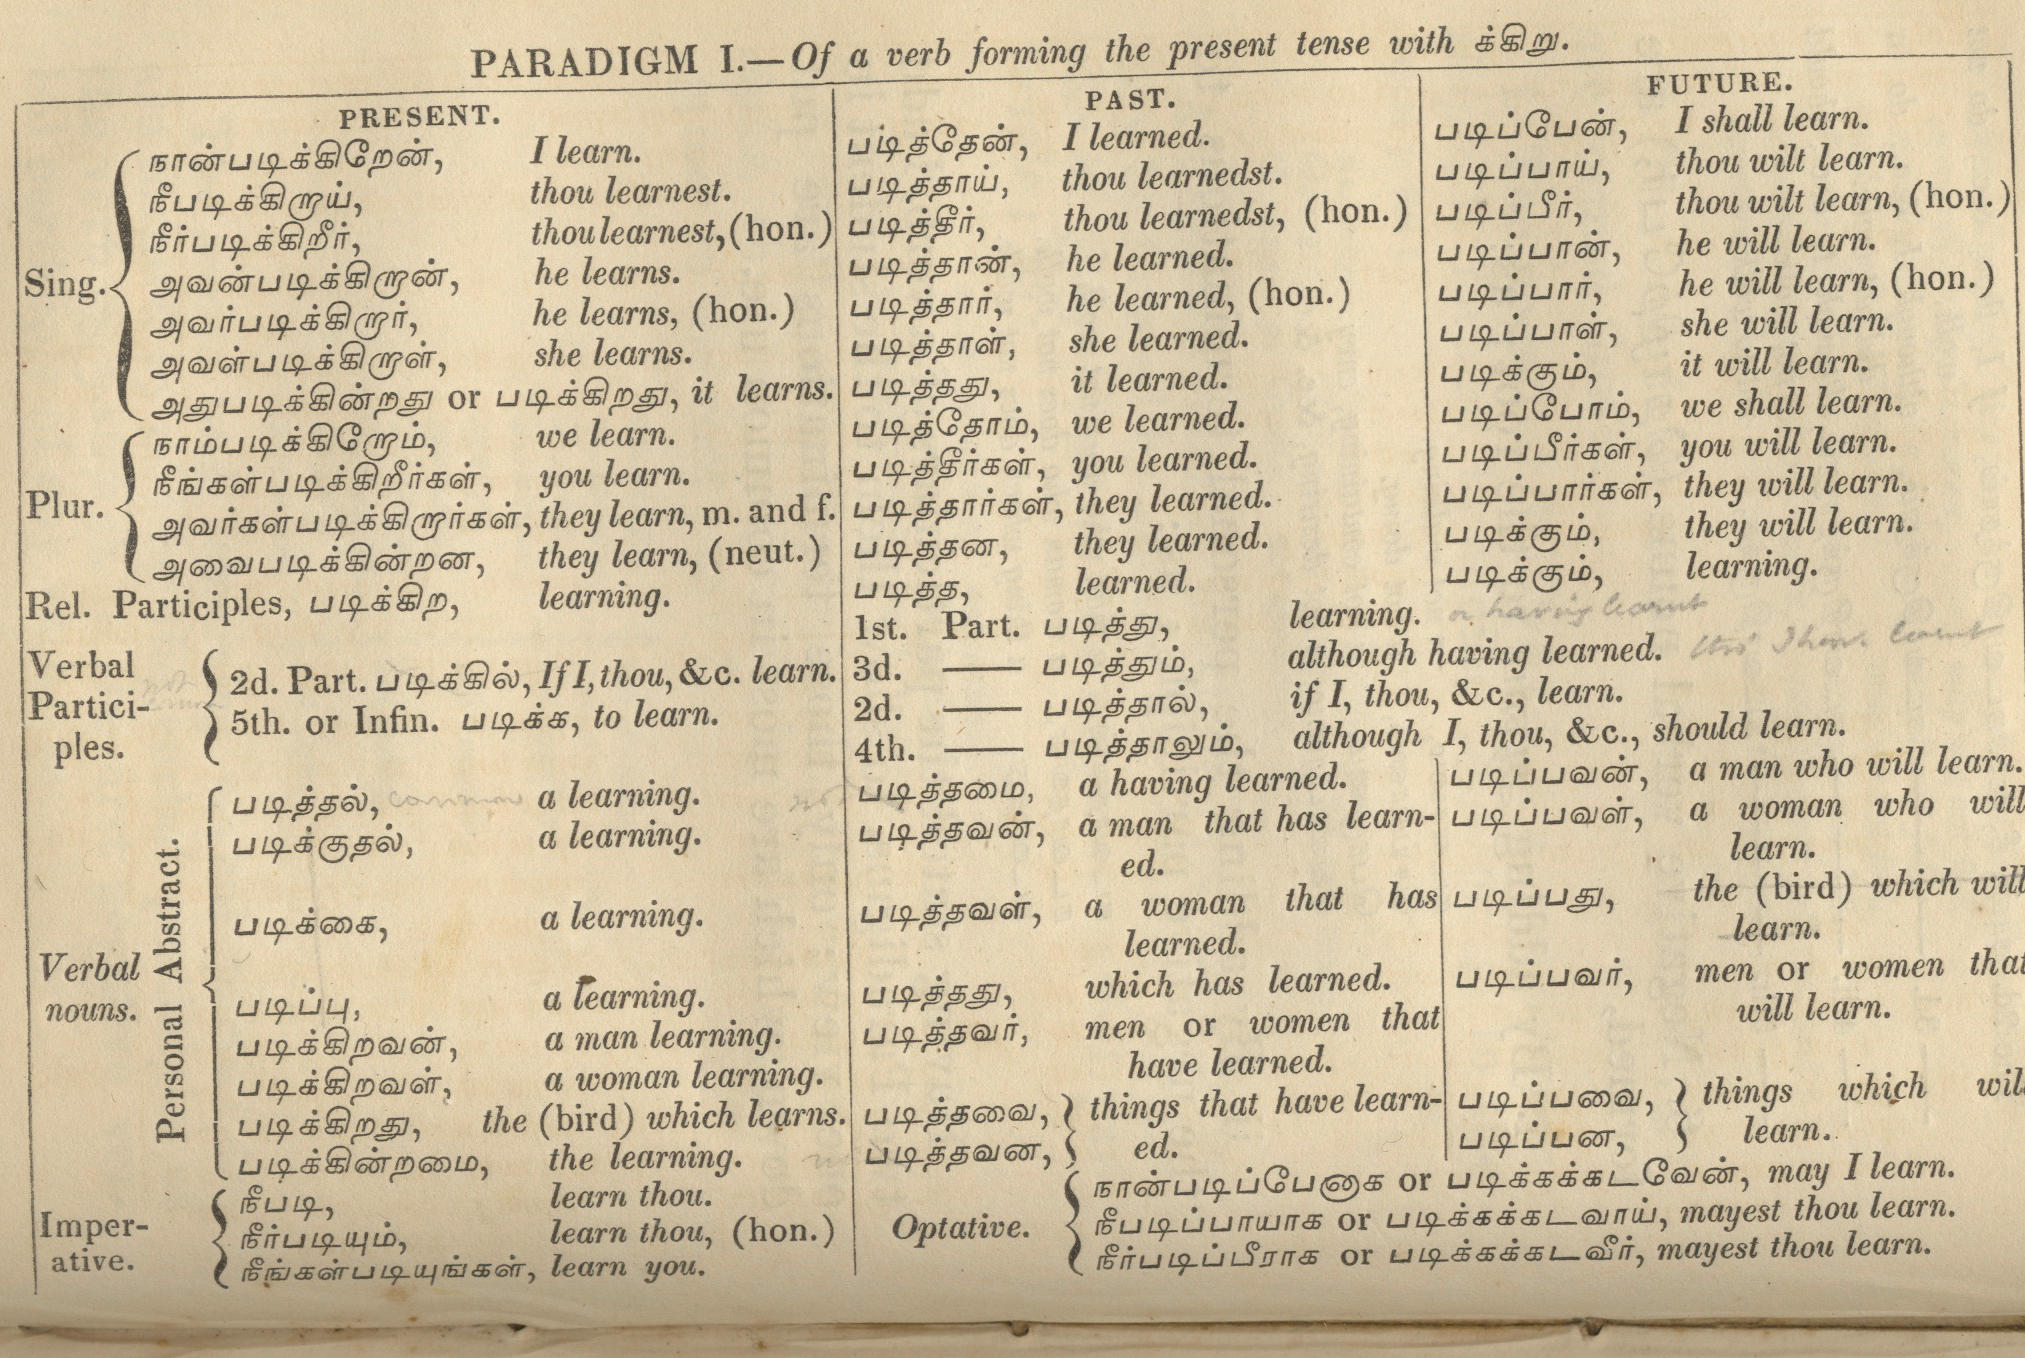 PARADIGM I.—Of a verb forming the present tense with க்கிறு.
PRESENT.
Sing.
நான்படிக்கிறேன், I learn.
நீபடிக்கிறாய், thou learnest.
நீர்படிக்கிறீர், thou learnest, (hon.)
அவன்படிக்கிறான், he learns.
அவர்படிக்கிறார், he learns, (hon.)
அவள்படிக்கிறாள், she learns.
அதுபடிக்கின்றது or படிக்கிறது, it learns.
Plur.
நாம்படிக்கிறோம், we learn.
நீங்கள்படிக்கிறீர்கள், you learn.
அவர்கள்படிக்கிறார்கள், they learn, m. and f.
அவைபடிக்கின்றன, they learn, (neut.)
Rel. Participles, படிக்கிற, learning.
Verbal
Partici-
ples.
2d. Part. படிக்கில், If I, thou, &c. learn.
5th. or Infin. படிக்க, to learn.
Verbal
nouns.
Personal Abstract.
படித்தல், common a learning.
படிக்குதல், a learning.
படிக்கை, a learning.
படிப்பு, a learning.
படிக்கிறவன், a man learning.
படிக்கிறவள், a woman learning.
படிக்கிறது, the (bird) which learns.
படிக்கின்றமை, the learning.
Imper-
ative.
நீபடி, learn thou.
நீர்படியும், learn thou, (hon.)
நீங்கள்படியுங்கள், learn you.
PAST.
படித்தேன், I learned.
படித்தாய், thou learnedst.
படித்தீர், thou learnedst, (hon.)
படித்தான், he learned.
படித்தார், he learned, (hon.)
படித்தாள், she learned.
படித்தது, it learned.
படித்தோம், we learned.
படித்தீர்கள், you learned.
படித்தார்கள், they learned.
படித்தன, they learned.
படித்த, learned.
1st. Part. படித்து, learning. or having learnt
3d. —— படித்தும், although having learned.
2d. —— படித்தால், if I, thou, &c., learn.
4th. —— படித்தாலும், although I, thou, &c., should learn.
படித்தமை, a having learned.
படித்தவன், a man that has learn-
ed.
படித்தவள், a woman that has
learned.
படித்தது, which has learned.
படித்தவர், men or women that
have learned.
படித்தவை, things that have learn-
படித்தவன, ed.
FUTURE.
படிப்பேன், I shall learn.
படிப்பாய், thou wilt learn.
படிப்பீர், thou wilt learn, (hon.)
படிப்பான், he will learn.
படிப்பார், he will learn, (hon.)
படிப்பாள், she will learn.
படிக்கும், it will learn.
படிப்போம், we shall learn.
படிப்பீர்கள், you will learn.
படிப்பார்கள், they will learn.
படிக்கும், they will learn.
படிக்கும், learning.
படிப்பவன், a man who will learn.
படிப்பவள், a woman who will
learn.
படிப்பது, the (bird) which will
learn.
படிப்பவர், men or women that
will learn.
படிப்பவை, things which will
படிப்பன, learn.
Optative.
நான்படிப்பேனாக or படிக்கக்கடவேன், may I learn.
நீபடிப்பாயாக or படிக்கக்கடவாய், mayest thou learn.
நீர்படிப்பீராக or படிக்கக்கடவீர், mayest thou learn.